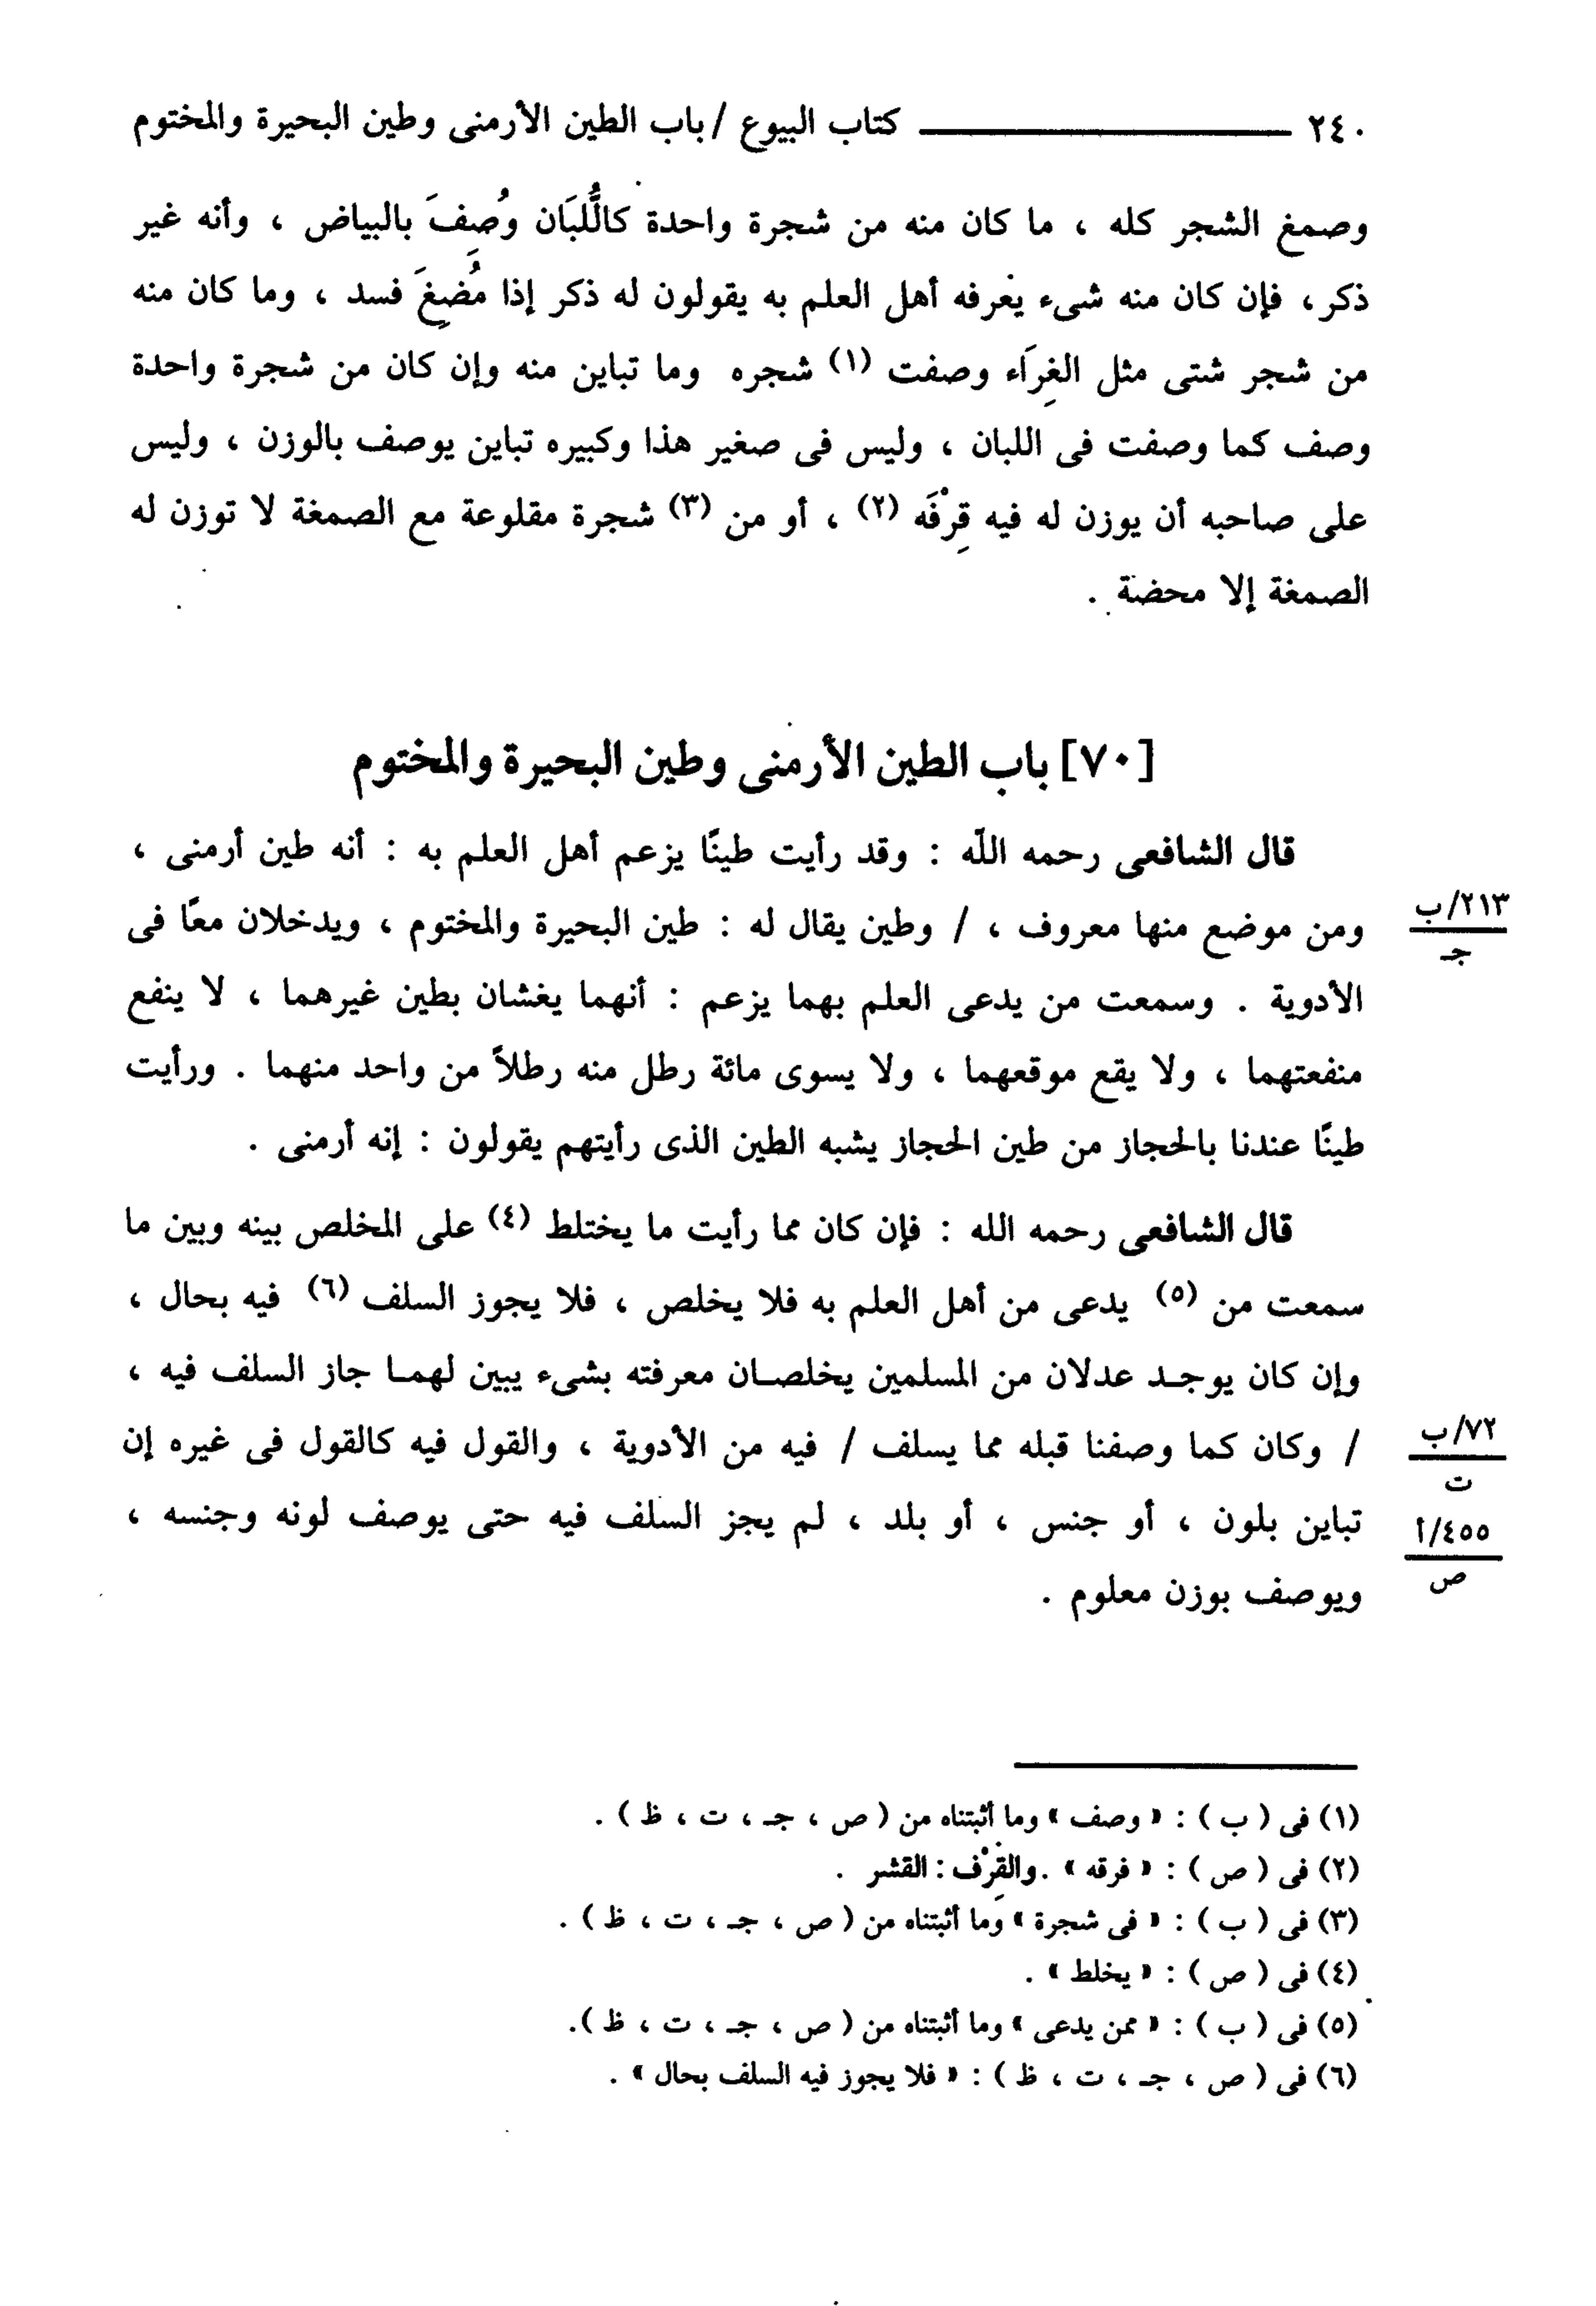 ٢٤٠ ـــــــــــــــــ كتاب البيوع / باب الطين الأرمنى وطين البحيرة والمختوم
وصمغ الشجر كله ، ما كان منه من شجرة واحدة كالُّلبَان وُصِفَ بالبياض ، وأنه غير
ذكر ، فإن كان منه شىء يعرفه أهل العلم به يقولون له ذكر إذا مُضِغَ فسد ، وما كان منه
من شجر شتى مثل الغِرَاء وصفت (١) شجره وما تباين منه وإن كان من شجرة واحدة
وصف كما وصفت فى اللبان ، وليس فى صغير هذا وكبيره تباين يوصف بالوزن ، وليس
على صاحبه أن يوزن له فيه قِرْفَه (٢) ، أو من (٣) شجرة مقلوعة مع الصمغة لا توزن له
الصمغة إلا محضة .
[٧٠] باب الطين الأرمنى وطين البحيرة والمختوم
قال الشافعى رحمه اللّه : وقد رأيت طينًا يزعم أهل العلم به : أنه طين أرمنى ،
ومن موضع منها معروف ، / وطين يقال له : طين البحيرة والمختوم ، ويدخلان معًا فى
٢١٣/ب
جـ
الأدوية . وسمعت من يدعى العلم بهما يزعم : أنهما يغشان بطين غيرهما ، لا ينفع
منفعتهما ، ولا يقع موقعهما ، ولا يسوى مائة رطل منه رطلاً من واحد منهما . ورأيت
طينًا عندنا بالحجاز من طين الحجاز يشبه الطين الذى رأيتهم يقولون : إنه أرمنى .
قال الشافعى رحمه الله : فإن كان مما رأيت ما يختلط (٤) على المخلص بينه وبين ما
سمعت من (٥) يدعى من أهل العلم به فلا يخلص ، فلا يجوز السلف (٦) فيه بحال ،
وإن كان يوجد عدلان من المسلمين يخلصان معرفته بشىء يبين لهما جاز السلف فيه ،
/ وكان كما وصفنا قبله مما يسلف / فيه من الأدوية ، والقول فيه كالقول فى غيره إن
٧٢/ب
ت
تباين بلون ، أو جنس ، أو بلد ، لم يجز السلف فيه حتى يوصف لونه وجنسه ،
٤٥٥/أ
ص
ويوصف بوزن معلوم .
(١) فى ( ب ) : « وصف » وما أثبتناه من ( ص ، جـ ، ت ، ظ ) .
(٢) فى ( ص ) : « فرقه » . والقِرْف : القشر .
(٣) فى ( ب ) : « فى شجرة » وما أثبتناه من ( ص ، جـ ، ت ، ظ ) .
(٤) فى ( ص ) : « يخلط » .
(٥) فى ( ب ) : « ممن يدعى » وما أثبتناه من ( ص ، جـ ، ت ، ظ ).
(٦) فى ( ص ، جـ ، ت ، ظ ) : « فلا يجوز فيه السلف بحال » .